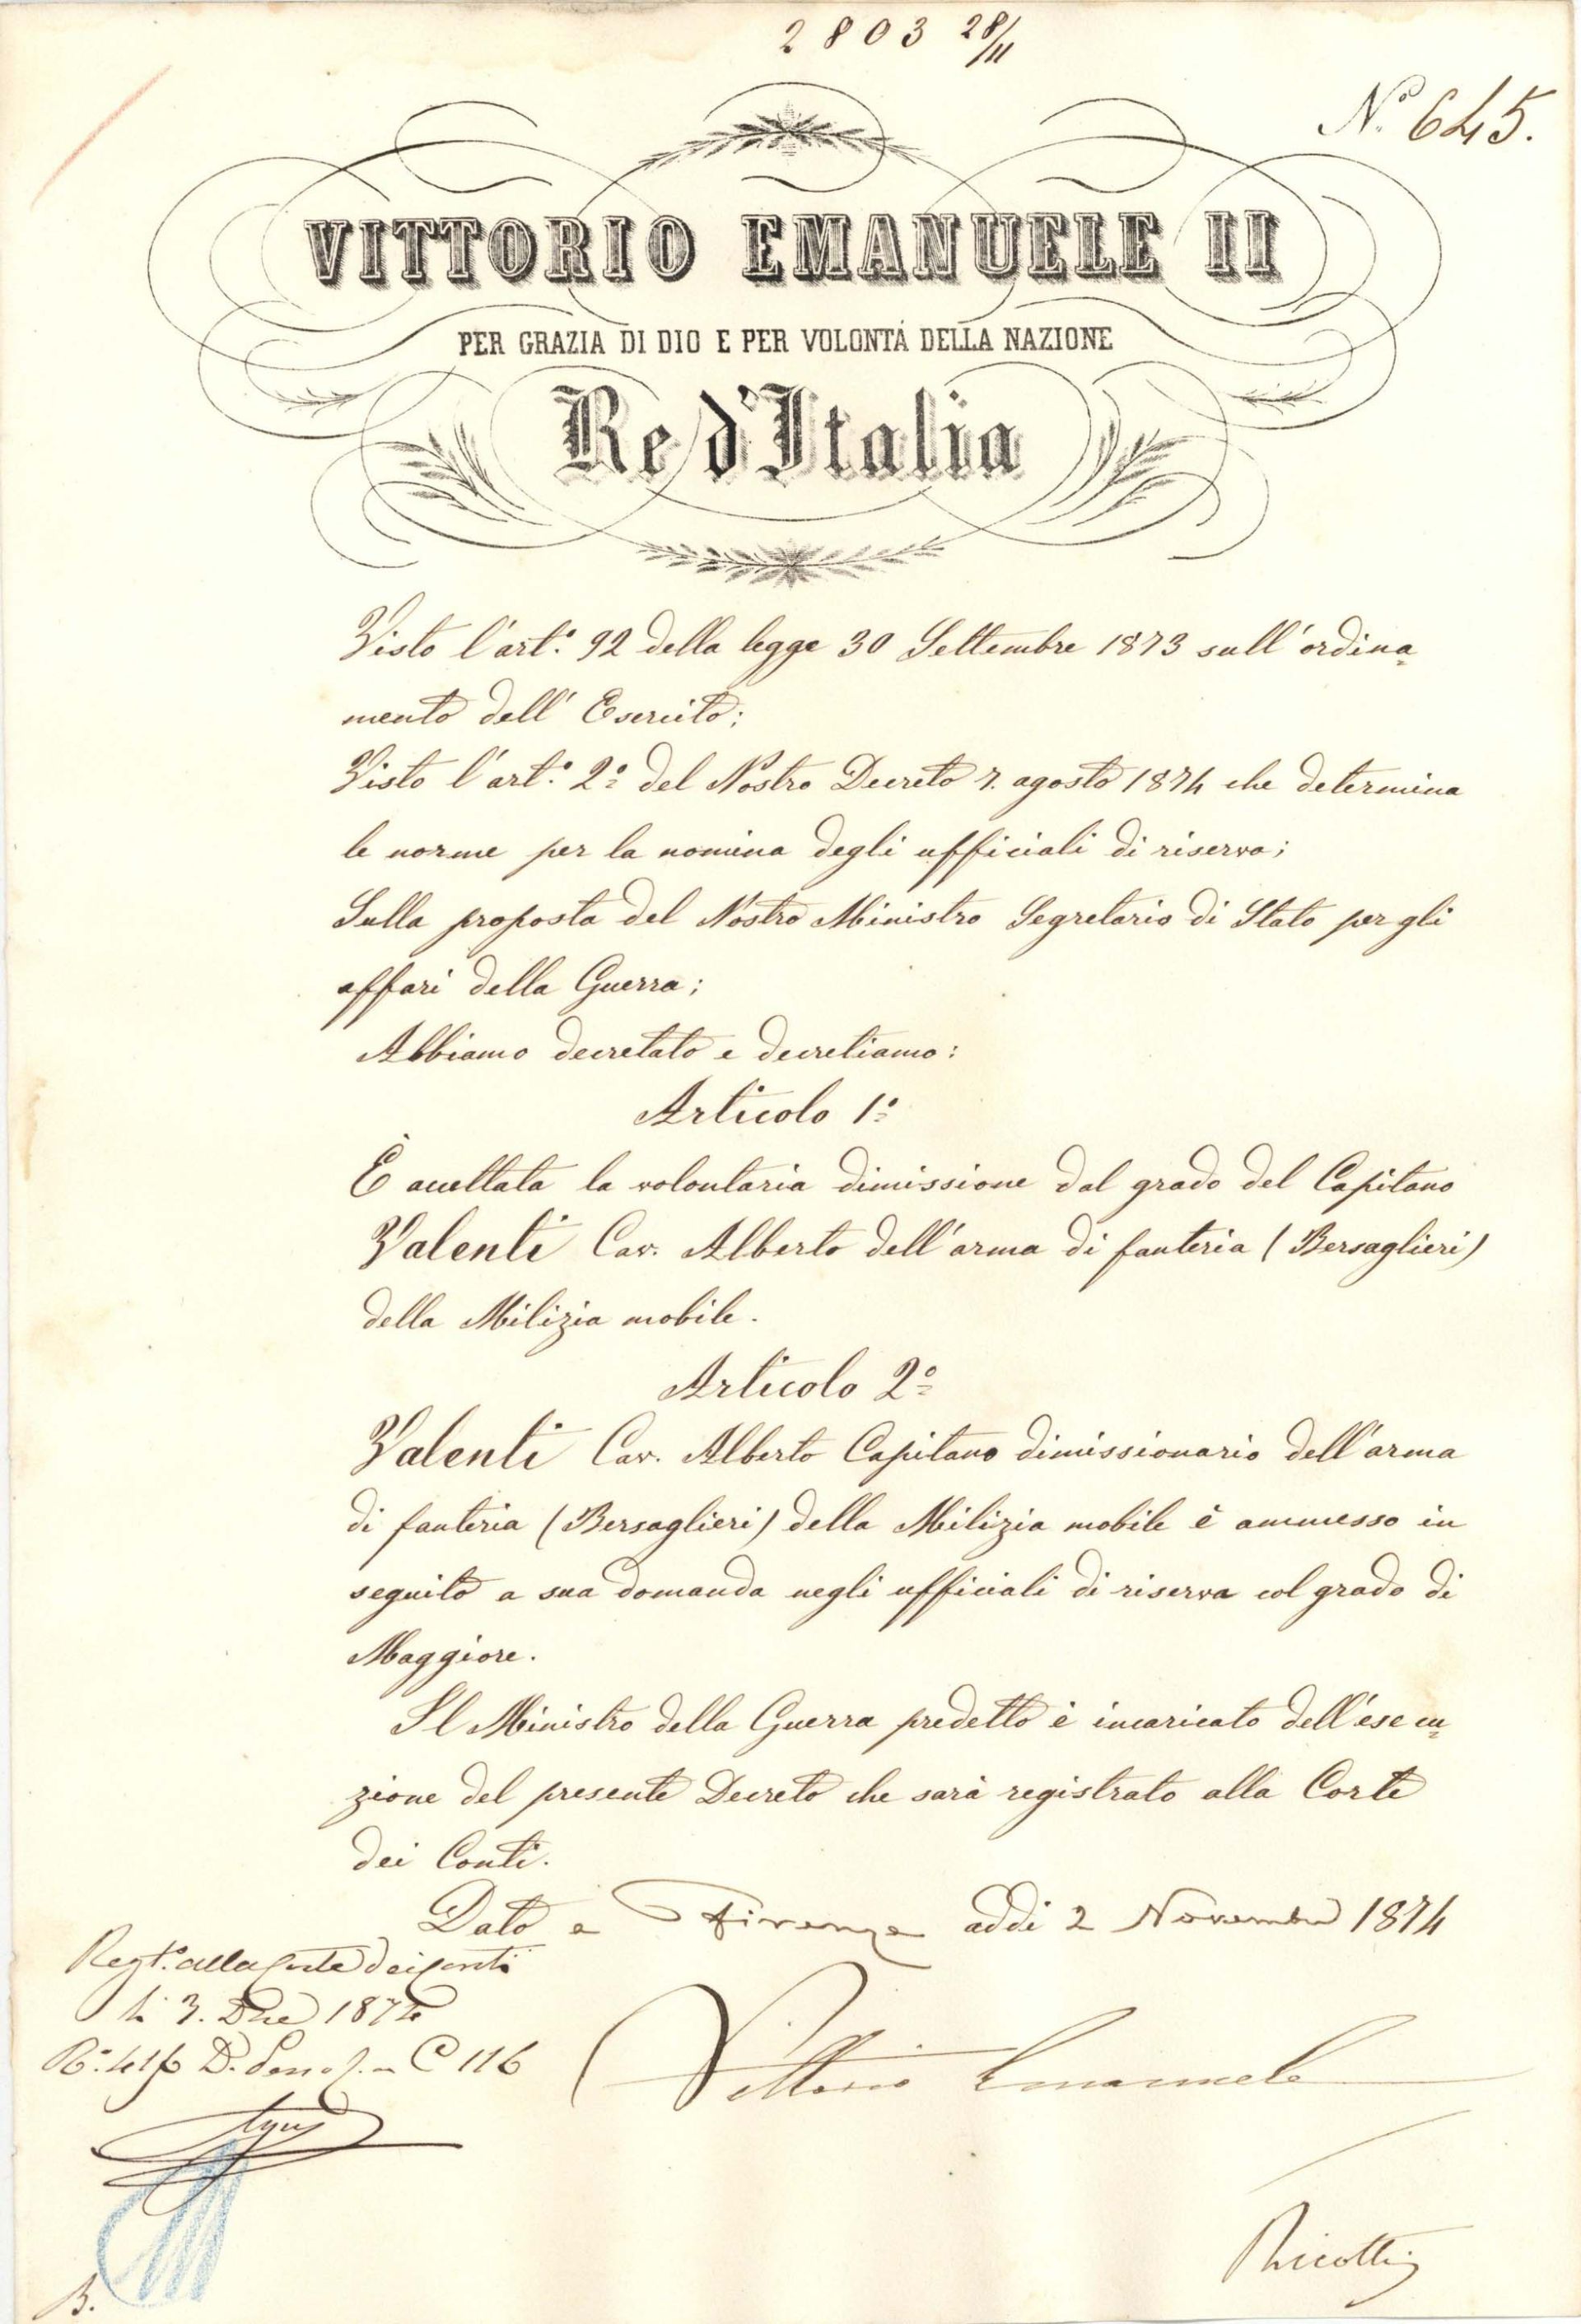 2803 28/11
N.º 645.
VITTORIO EMANUELE II
PER GRAZIA DI DIO E PER VOLONTÁ DELLA NAZIONE
Re d'Italia
Visto l'art.º 92 della legge 30 Settembre 1873 sull'ordina=
mento dell'Esercito;
Visto l'art.º 2º del Nostro Decreto 7. agosto 1874 che determina
le norme per la nomina degli ufficiali di riserva;
Sulla proposta del Nostro Ministro Segretario di Stato per gli
affari della Guerra;
Abbiamo decretato e decretiamo:
Articolo 1º
È accettata la volontaria dimissione dal grado del Capitano
Valenti Cav. Alberto dell'arma di fanteria (Bersaglieri)
della Milizia mobile.
Articolo 2º
Valenti Cav. Alberto Capitano dimissionario dell'arma
di fanteria (Bersaglieri) della Milizia mobile è ammesso in
seguito a sua domanda negli ufficiali di riserva col grado di
Maggiore.
Il Ministro della Guerra predetto è incaricato dell'esecu=
zione del presente Decreto che sarà registrato alla Corte
dei Conti.
Dato a Firenze addì 2 Novembre 1874
Regt.º alla Corte dei Conti
li 3. Dbre 1874
C 116
Vittorio Emanuele
Ricotti
B.